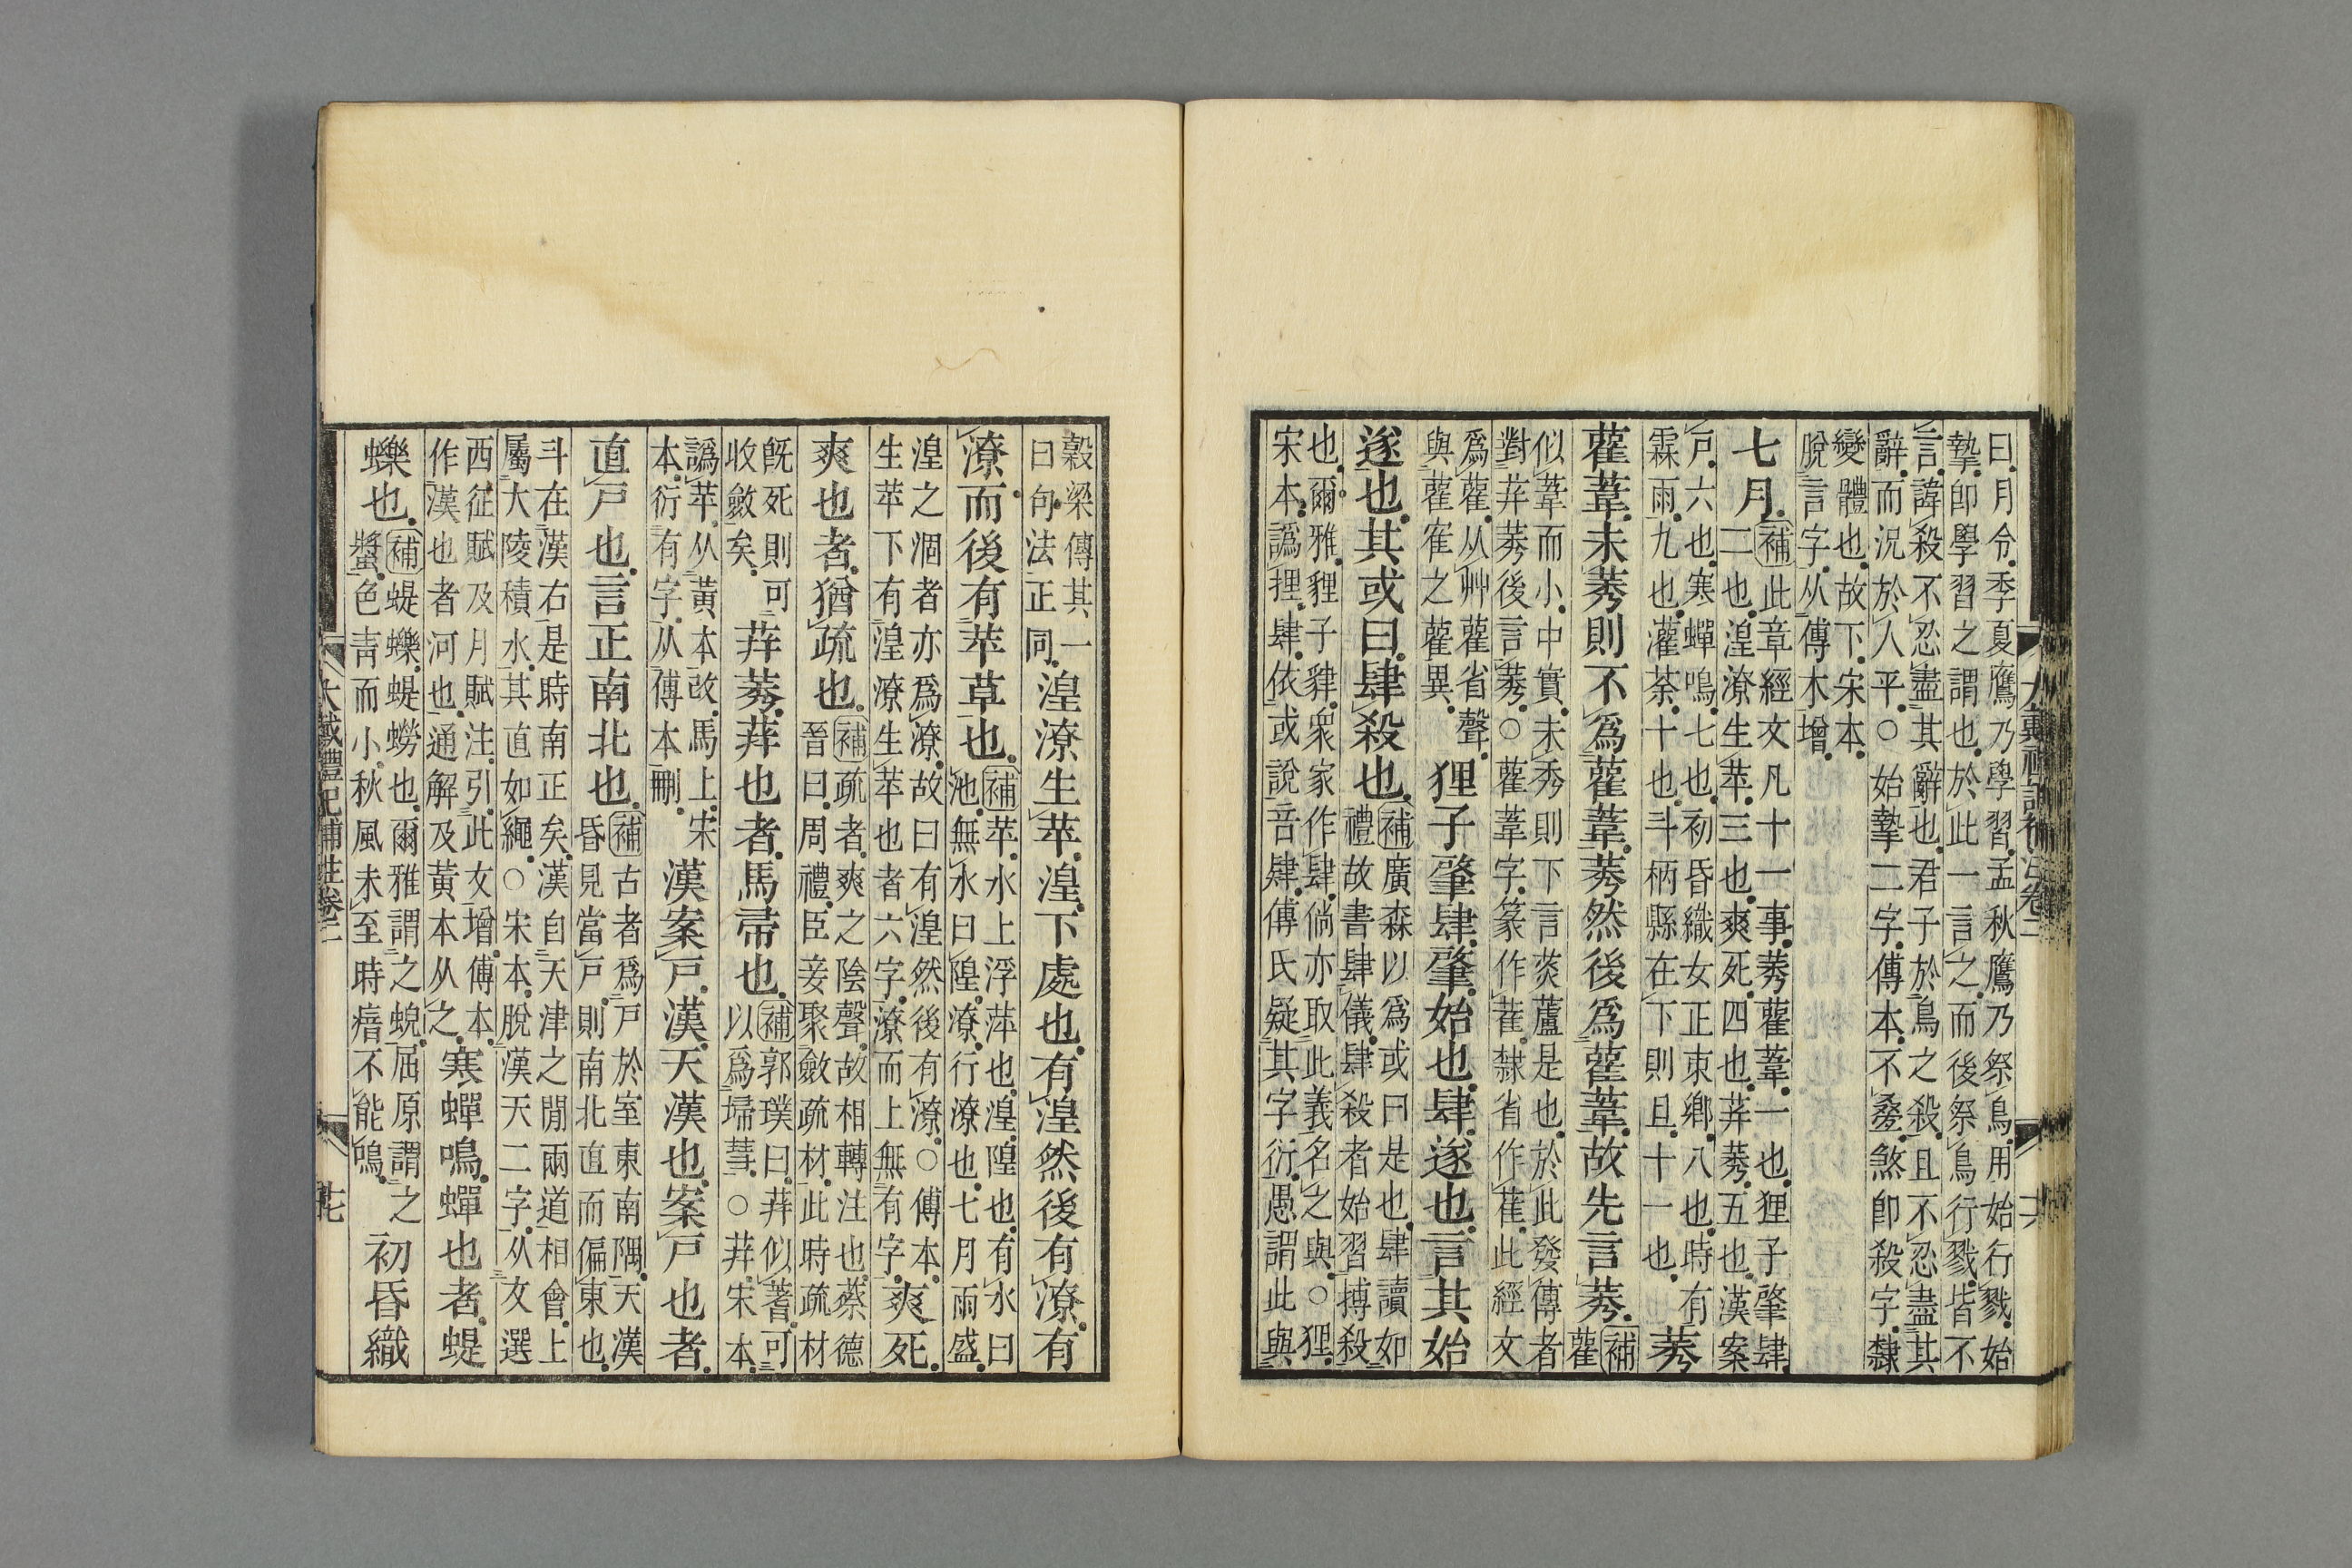 曰月令季夏鷹乃學習孟秋鷹乃祭鳥用始行戮始
摯卽學習之謂也於此一言之而後祭鳥行戮皆不
言諱殺不忍盡其辭也君子於鳥之殺且不忍盡其
辭而況於人乎○始摯二字傳本不疊煞卽殺字隸
變體也故下宋本
脫言字从傳本增
七月
補此章經文凡十一事莠雚葦一也狸子肇肆
二也湟潦生苹三也爽死四也荓莠五也漢案
戸六也寒蟬鳴七也初昏織女正東鄉八也時有
霖雨九也灌荼十也斗柄縣在下則旦十一也
莠
雚葦未莠則不爲雚葦莠然後爲雚葦故先言莠
補
雚
似葦而小中實未秀則下言菼蘆是也於此發傳者
對荓莠後言莠○雚葦字篆作萑隸省作萑此經文
爲雚从艸雚省聲
與雚雈之雚異
狸子肇肆肇始也肆遂也言其始
遂也其或曰肆殺也
補廣森以爲或曰是也肆讀如
禮故書肆儀肆殺者始習搏殺
也爾雅貍子貄衆家作肆倘亦取此義名之與○狸
宋本譌捚肆依或說音肄傅氏疑其字衍愚謂此與
大戴禮記補注卷二
十六
穀梁傳其一
曰句法正同
湟潦生苹湟下處也有湟然後有潦有
潦而後有苹草也
補苹水上浮萍也湟隍也有水曰
池無水曰隍潦行潦也七月雨盛
湟之涸者亦爲潦故曰有湟然後有潦○傳本
生苹下有湟潦生苹也者六字潦而上無有字
爽死
爽也者猶疏也
補疏者爽之陰聲故相轉注也蔡德
晉曰周禮臣妾聚斂疏材此時疏材
旣死則可
收斂矣
荓莠荓也者馬帚也
補郭璞曰荓似蓍可
以爲埽彗○荓宋本
譌苹从黃本改馬上宋
本衍有字从傳本刪
漢案戸漢天漢也案戸也者
直戸也言正南北也
補古者爲戸於室東南隅天漢
昏見當戸則南北直而偏東也
斗在漢右是時南正矣漢自天津之閒兩道相會上
屬大陵積水其直如繩○宋本脫漢天二字从文選
西征賦及月賦注引此文增傳本
作漢也者河也通解及黃本从之
寒蟬鳴蟬也者蝭
蠑也
補蝭蠑蝭蟧也爾雅謂之蜺屈原謂之
螿色靑而小秋風未至時瘖不能鳴
初昏織
大戴禮記補注卷二
十七